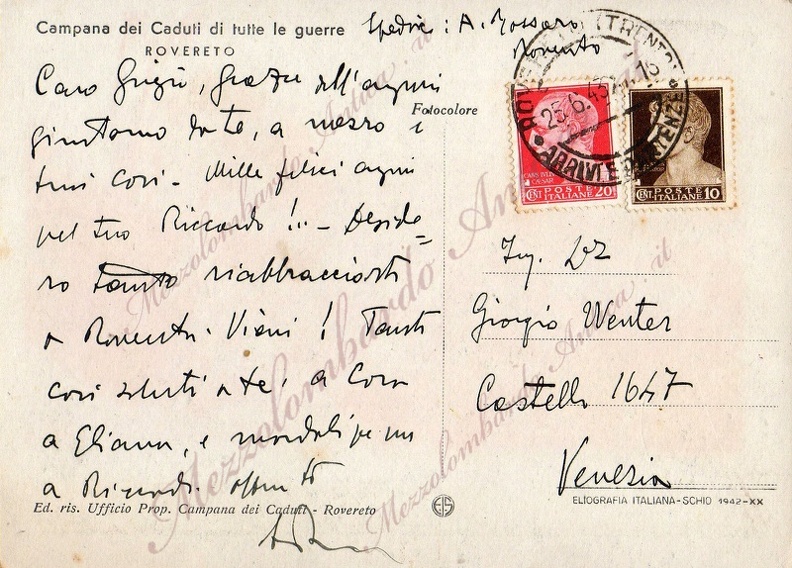 Campana dei Caduti di tutte le guerre
ROVERETO
Spedire: A. Rossaro
Rovereto
Caro Giorgio, grazie dell'auguri
giuntomi da te, a mezzo i
tuoi cori - Mille felici auguri
pel tuo Riccardo!!.. - Deside=
ro tanto riabbracciarti
a Rovereto. Vieni! Tanti
cari saluti a te, a Cora
a Eliana, e mandali per me
a Riccardo. aff
Fotocolore
POSTE
ITALIANE
CENT
20
POSTE
ITALIANE
CENT
10
(TRENTO)
25.6.43
ARRIVI E PARTENZE
Ing. Dr
Giorgio Wenter
Castello 1647
Venezia
Ed. ris. Ufficio Prop. Campana dei Caduti - Rovereto
ELIOGRAFIA ITALIANA-SCHIO 1942-XX
Mezzolombardo Antica.it
Mezzolombardo Antica.it
Mezzolombardo Antica.it